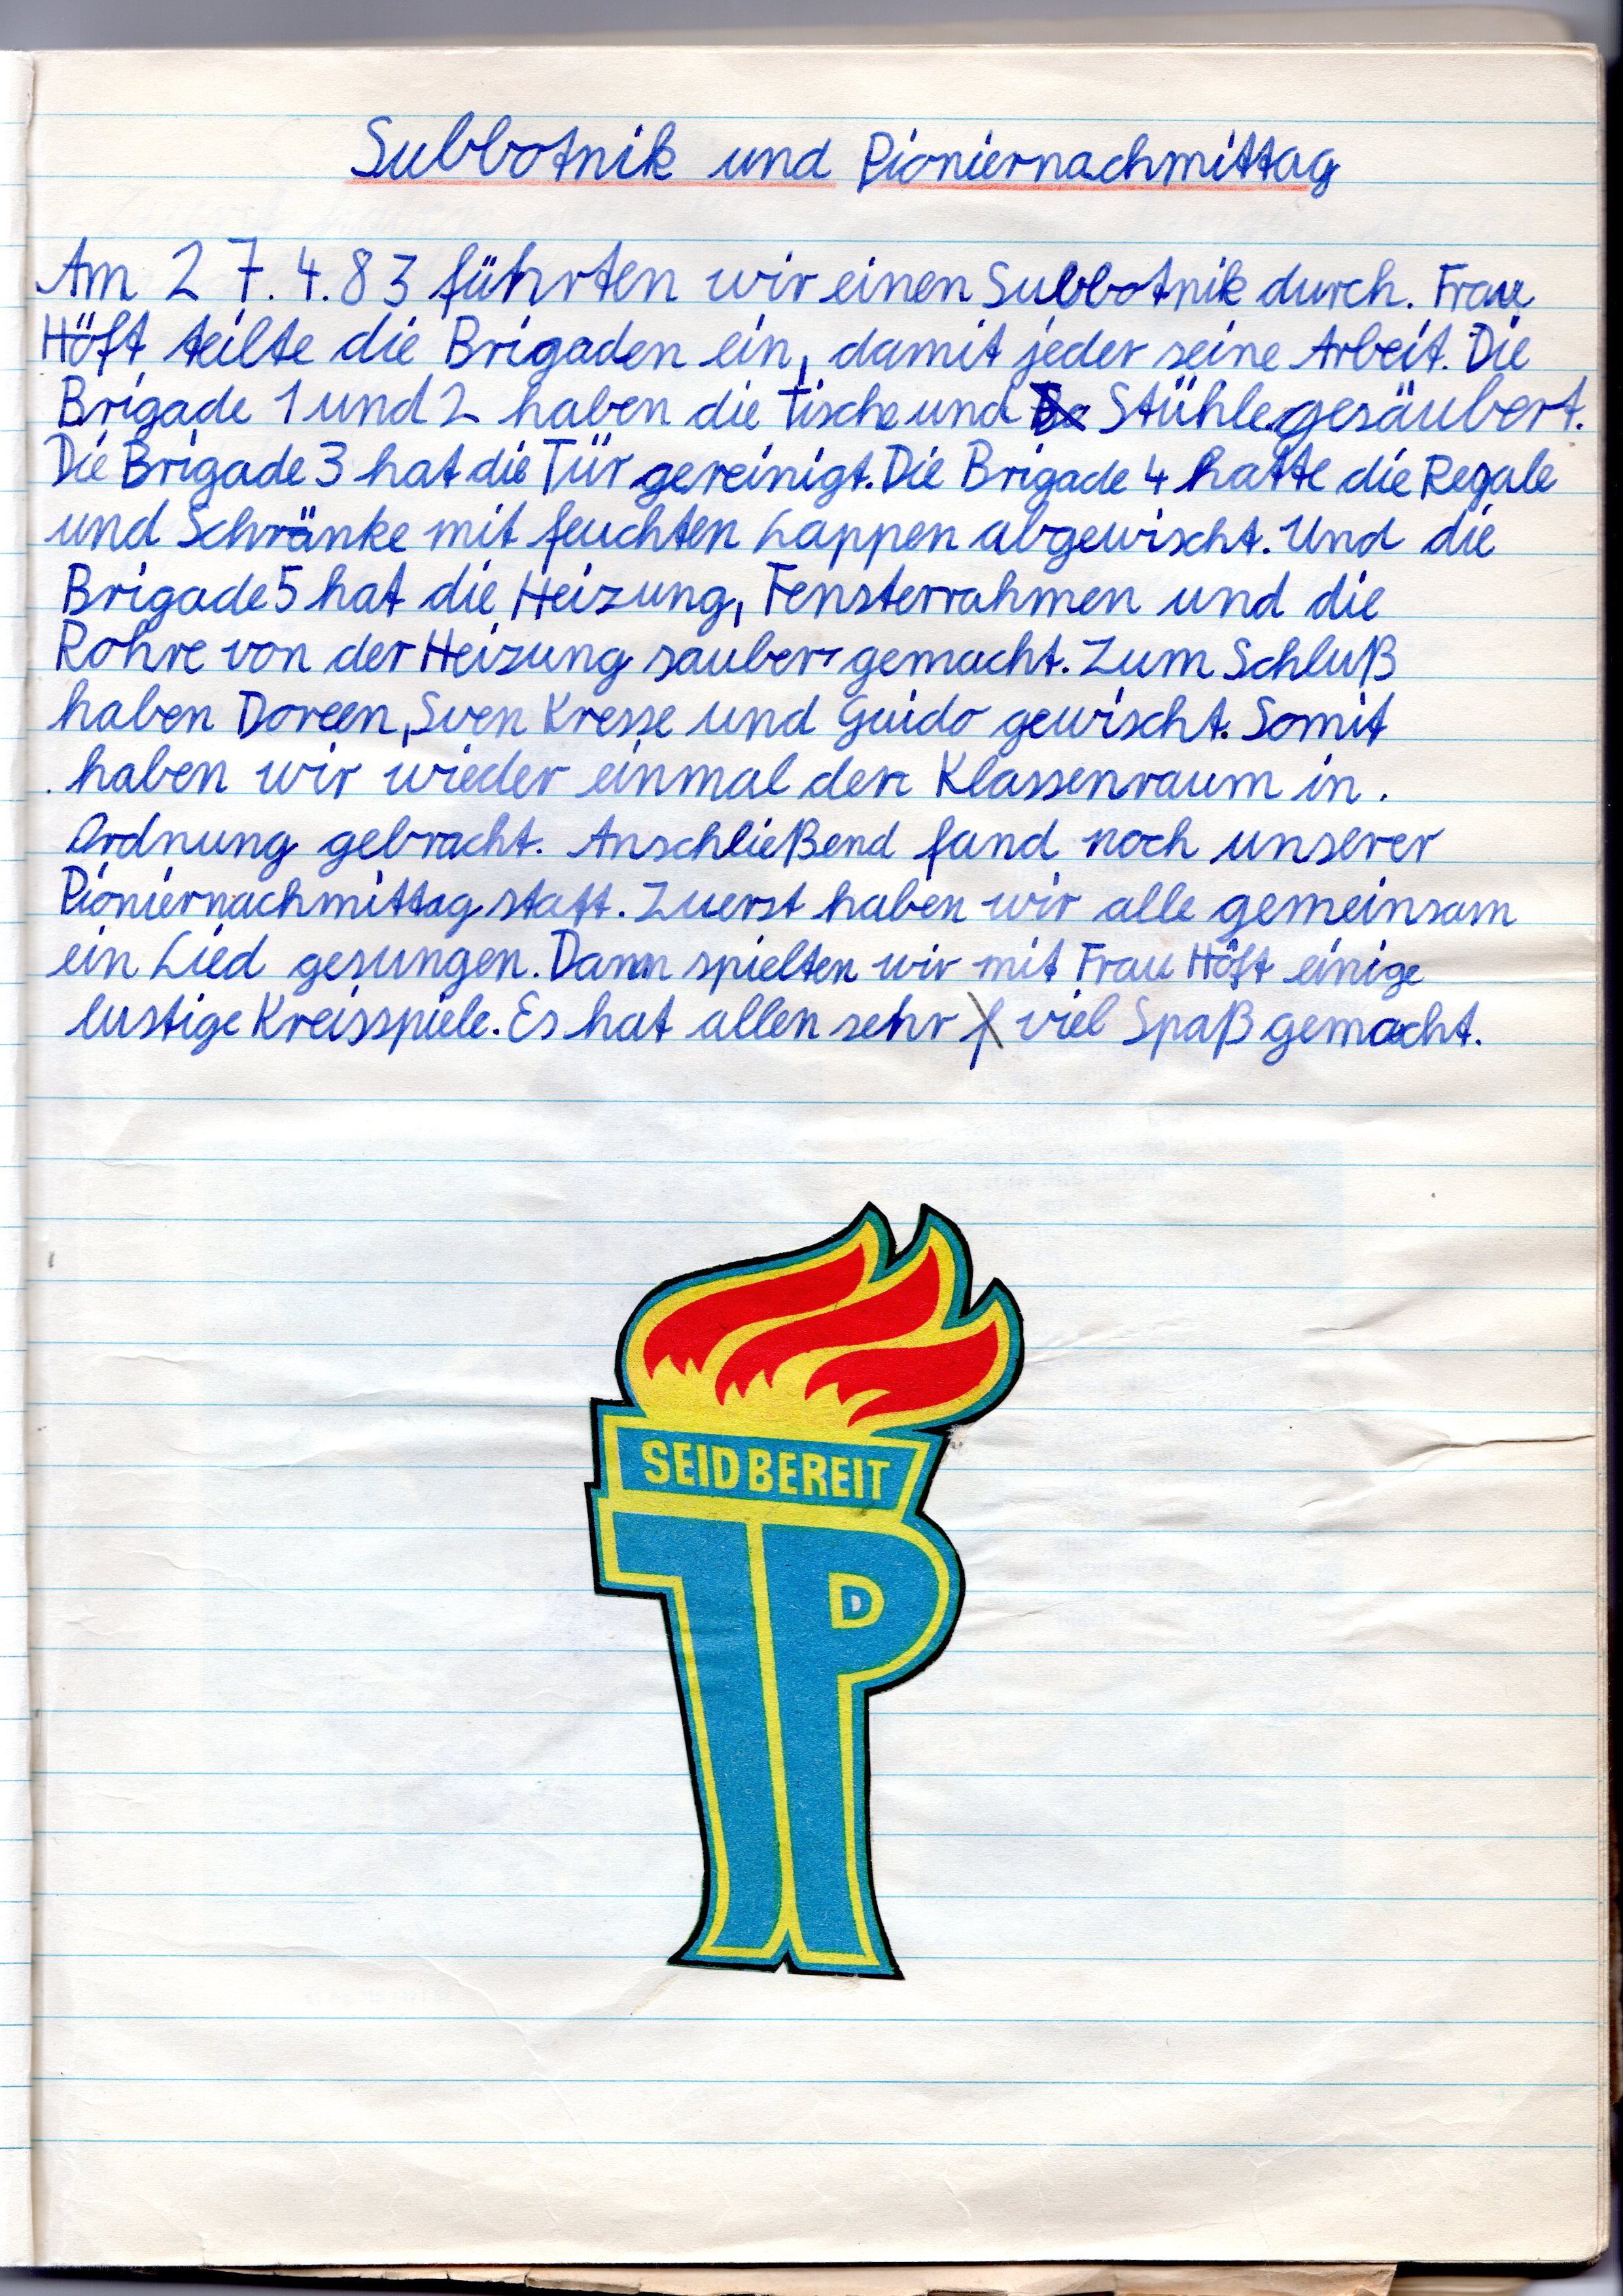 Subbotnik und Pioniernachmittag
Am 27.4.83 führten wir einen Subbotnik durch. Frau
Höft teilte die Brigaden ein, damit jeder seine Arbeit. Die
Brigade 1 und 2 haben die Tische und Stühle gesäubert.
Die Brigade 3 hat die Tür gereinigt. Die Brigade 4 hatte die Regale
und Schränke mit feuchten Lappen abgewischt. Und die
Brigade 5 hat die Heizung, Fensterrahmen und die
Rohre von der Heizung sauber gemacht. Zum Schluß
haben Doreen, Sven Kresse und Guido gewischt. Somit
haben wir wieder einmal den Klassenraum in
Ordnung gebracht. Anschließend fand noch unserer
Pioniernachmittag statt. Zuerst haben wir alle gemeinsam
ein Lied gesungen. Dann spielten wir mit Frau Höft einige
lustige Kreisspiele. Es hat allen sehr viel Spaß gemacht.
SEID BEREIT
JP